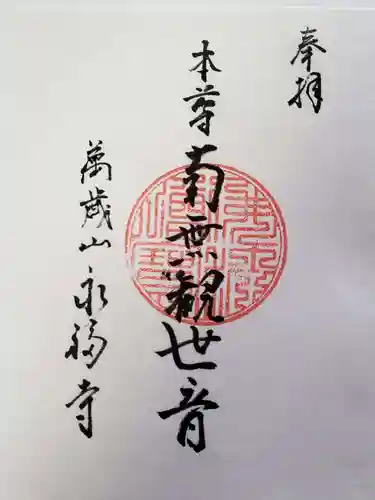 奉拝
本尊南無観世音
萬歳山永福寺